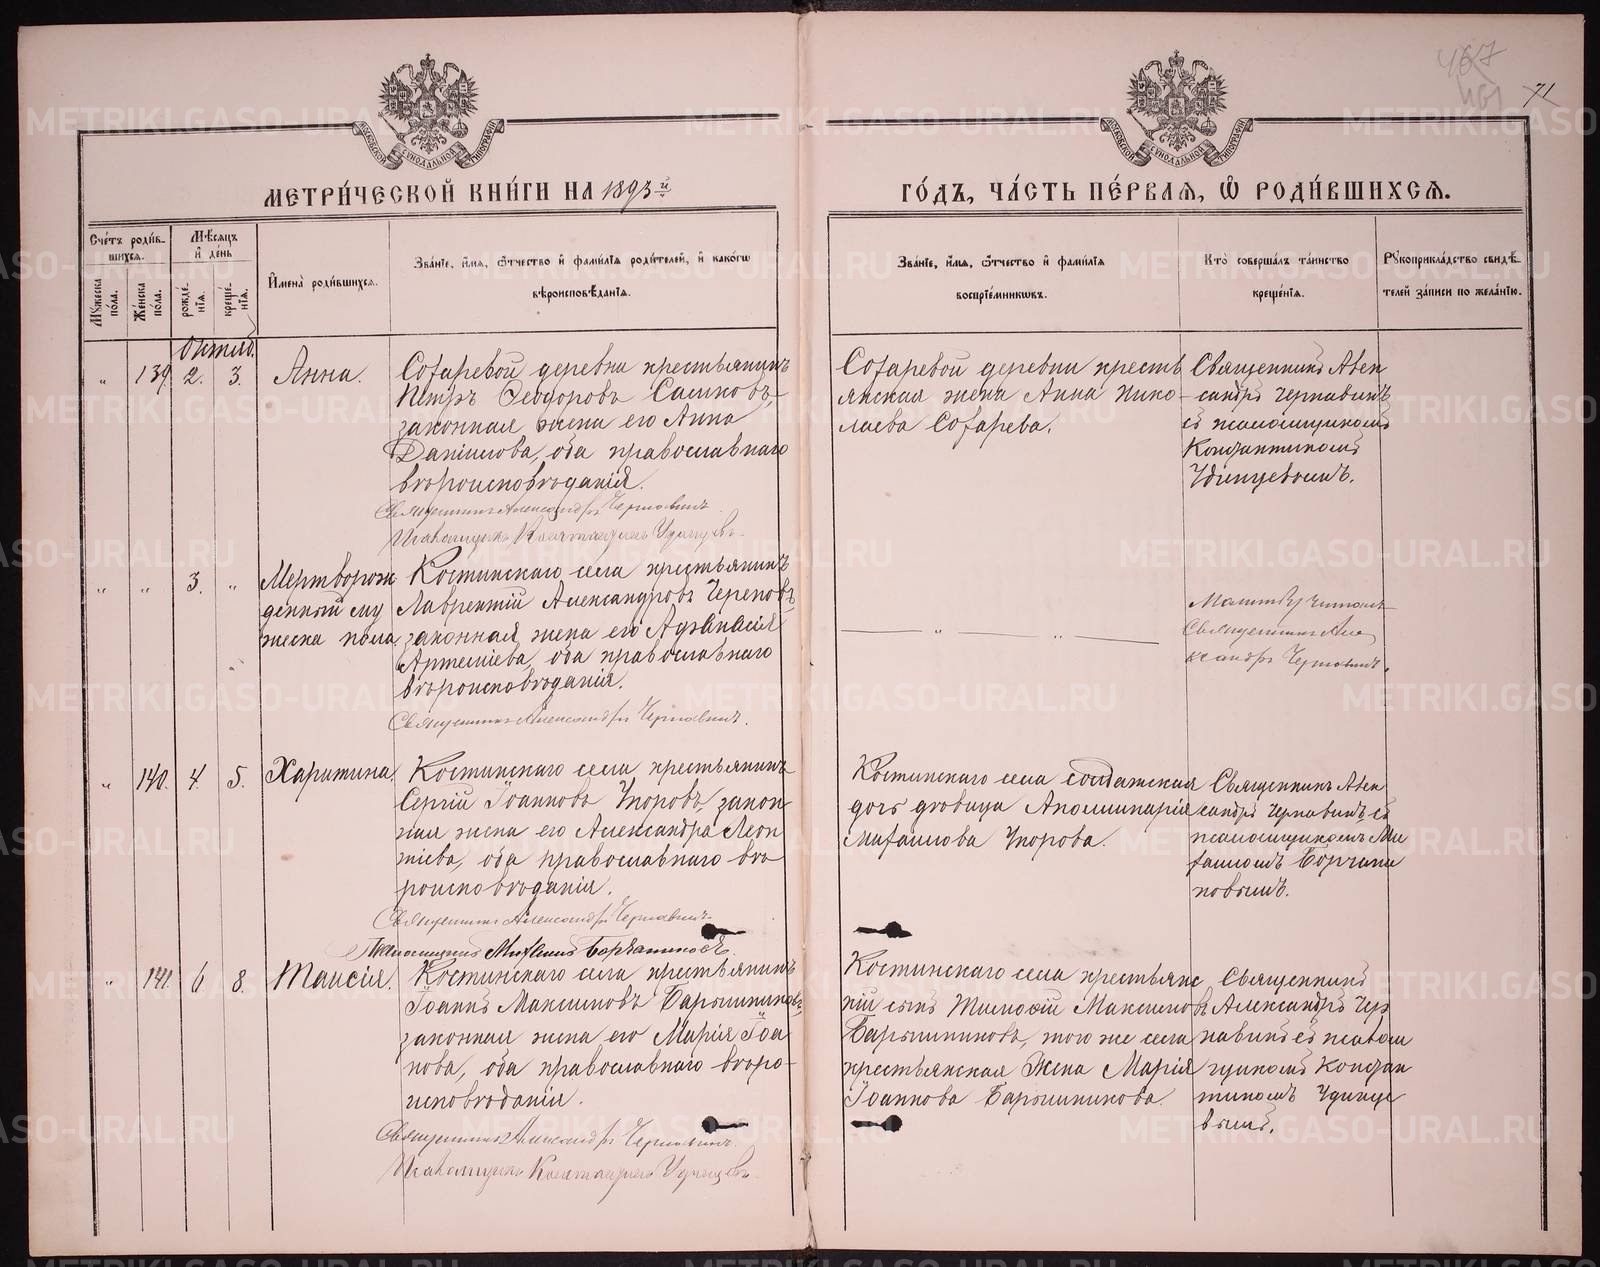 467
461
71
МОСКОВСКОЙ СѴНОДАЛЬНОЙ ТИПОГРАФІИ
МОСКОВСКОЙ СѴНОДАЛЬНОЙ ТИПОГРАФІИ
МЕТРИ́ЧЕСКОЙ КНИ́ГИ НА 1893й
ГО́ДЪ, ЧА́СТЬ ПЕ́РВАѦ, Ѡ҆ РОДИ́ВШИХСѦ.
Сче́тъ роди́в-
шихсѧ.
Мꙋ́жеска по́ла.
Же́нска по́ла.
Мѣ́сѧцъ
и҆ де́нь
рожде́-
нїѧ.
креще́-
нїѧ.
И҆мена̀ роди́вшихсѧ.
Зва́нїе, и҆́мѧ, ѻ҆́тчество и҆ фами́лїѧ роди́телей, и҆ како́гѡ
вѣроисповѣ́данїѧ.
Зва́нїе, и҆́мѧ, ѻ҆́тчество и҆ фами́лїѧ
воспрїе́мникѡвъ.
Кто̀ соверша́лъ та́инство
креще́нїѧ.
Рꙋкоприкла́дство свидѣ́-
телей за́писи по жела́нїю.
Октяб.
„ 139. 2. 3. Анна.
Сохаревой деревни крестьянинъ
Петръ Ѳеодоровъ Сашковъ,
законная жена его Анна
Даніилова, оба православнаго
вѣроисповѣданія.
Священникъ Александръ Чернавинъ.
Псаломщикъ Константинъ Удинцевъ.
Сохаревой деревни кресть
янская жена Анна Нико-
лаева Сохарева.
Священникъ Алек
сандръ Чернавинъ
съ псаломщикомъ
Константиномъ
Удинцевымъ.
„ „ 3. „ Мертворож
денный му
жеска пола.
Костинскаго села крестьянинъ
Лаврентій Александровъ Череповъ,
законная жена его Аѳанасія
Артеміева, оба православнаго
вѣроисповѣданія.
Священникъ Александръ Чернавинъ.
„ „
Молитву читалъ
Священникъ Але
ксандръ Чернавинъ.
„ 140. 4. 5. Харитина.
Костинскаго села крестьянинъ
Сергій Іоанновъ Упоровъ, закон
ная жена его Александра Леон
тіева, оба православнаго вѣ
роисповѣданія.
Священникъ Александръ Чернавинъ.
Псаломщикъ Михаилъ Борчаниновъ.
Костинскаго села солдатская
дочь дѣвица Аполлинарія
Михаилова Упорова.
Священникъ Алек
сандръ Чернавинъ съ
псаломщикомъ Ми
хаиломъ Борчани
новымъ.
„ 141. 6 8. Таисія.
Костинскаго села крестьянинъ
Іоаннъ Максимовъ Барышниковъ,
законная жена его Марія Іоа
нова, оба православнаго вѣро-
исповѣданія.
Священникъ Александръ Чернавинъ.
Псаломщикъ Константинъ Удинцевъ.
Костинскаго села крестьянс
кій сынъ Тимоѳій Максимовъ
Барышниковъ, того же села
крестьянская жена Марія
Іоаннова Барышникова.
Священникъ
Александръ Чер
навинъ съ псалом
щикомъ Констан
тиномъ Удинце
вымъ.
METRIKI.GASO-URAL.RU